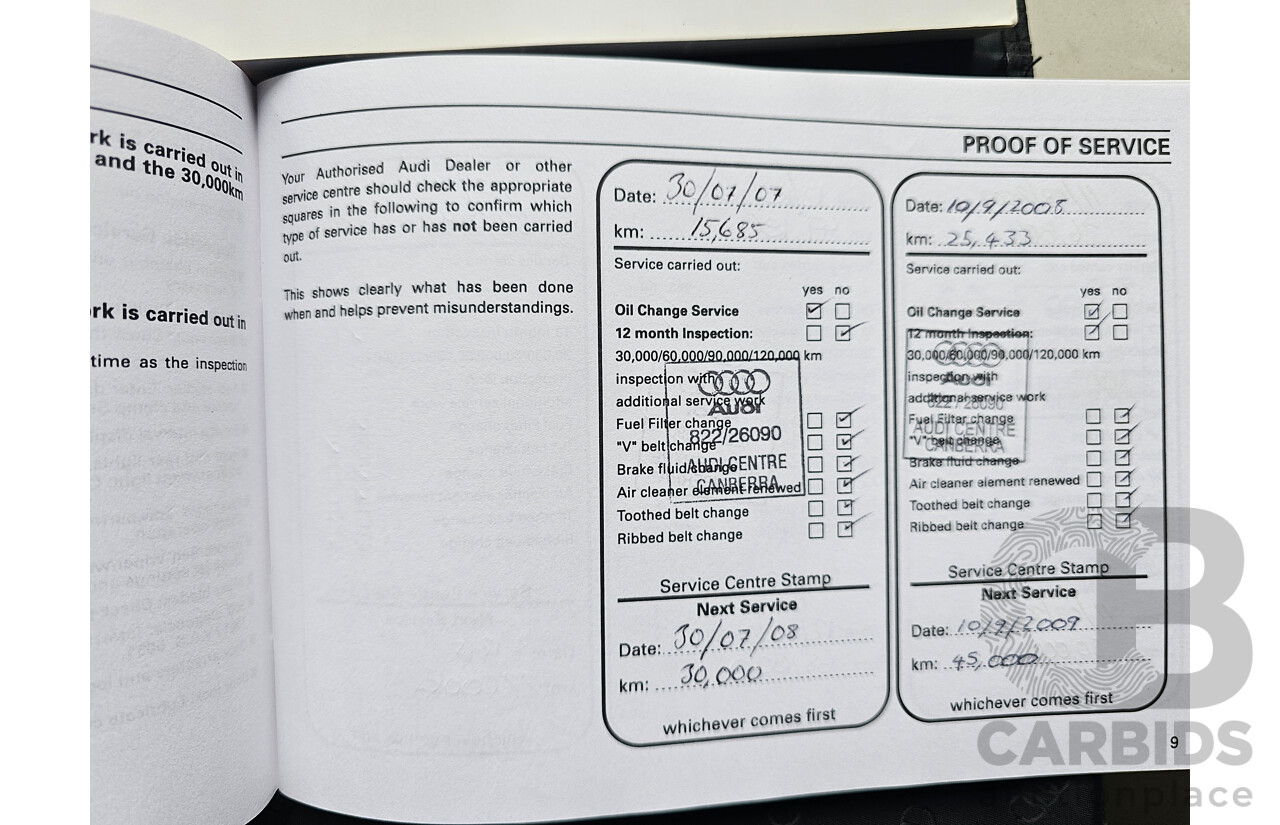 rk is carried out in
and the 30,000km
rk is carried out in
time as the inspection
PROOF OF SERVICE
Your Authorised Audi Dealer or other
service centre should check the appropriate
squares in the following to confirm which
type of service has or has not been carried
out.
This shows clearly what has been done
when and helps prevent misunderstandings.
Date: 30/07/07
km: 15,685
Service carried out:
yes no
Oil Change Service
12 month Inspection:
30,000/60,000/90,000/120,000 km
inspection with
additional service work
Fuel Filter change
"V" belt change
Brake fluid change
Air cleaner element renewed
Toothed belt change
Ribbed belt change
Audi
822/26090
AUDI CENTRE
CANBERRA
Service Centre Stamp
Next Service
Date: 30/07/08
km: 30,000
whichever comes first
Date: 10/9/2008
km: 25,433
Service carried out:
yes no
Oil Change Service
12 month Inspection:
30,000/60,000/90,000/120,000 km
inspection with
additional service work
Fuel Filter change
"V" belt change
Brake fluid change
Air cleaner element renewed
Toothed belt change
Ribbed belt change
Audi
822/26090
AUDI CENTRE
CANBERRA
Service Centre Stamp
Next Service
Date: 10/9/2009
km: 45,000
whichever comes first
9
CARBIDS